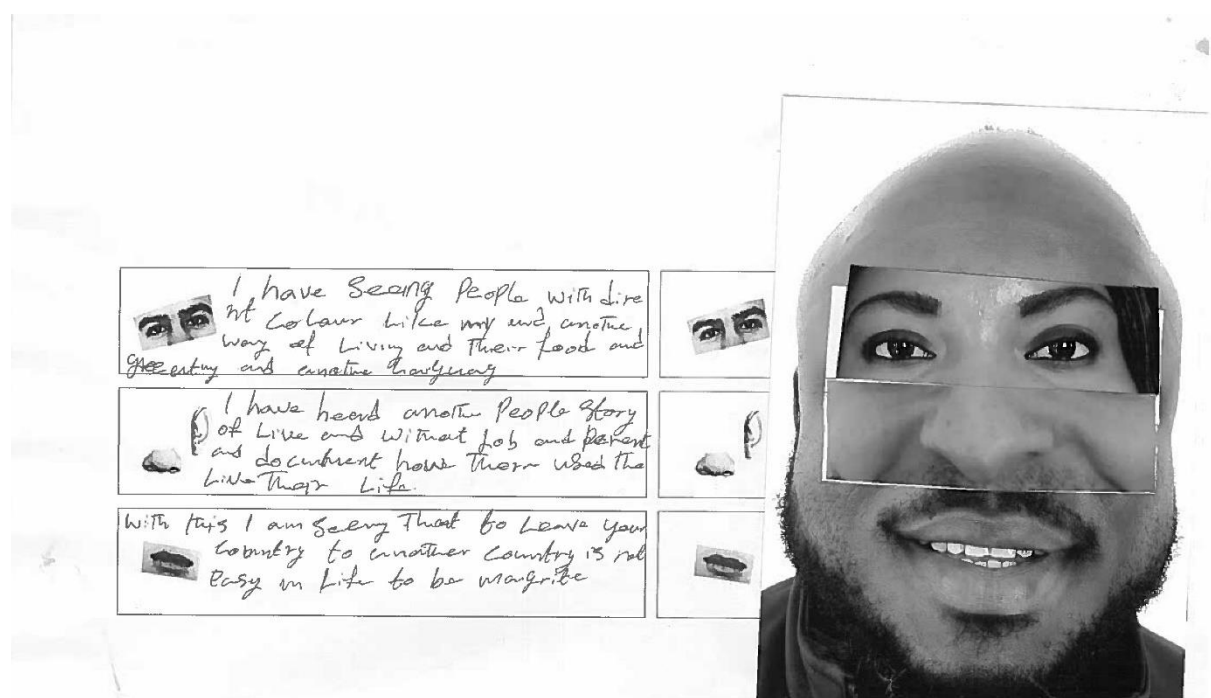 I have Seeing People with dire
nt Colour Like my and anothe
way of Living and Their food and
greeenting and anothe
I have heard anothe People Story
of Live and Without Job and Parent
and document how Them used The
Live Their Life.
With this I am Seeing That to Leave your
Country to another Country is not
Easy in Life to be